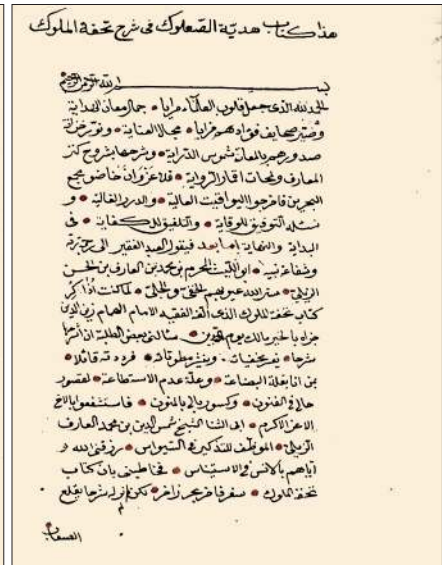 هذا كتاب هدية الصعلوك فى شرح تحفة الملوك
بسم الله الرحمن الرحيم
الحمد لله الذى جعل قلوب العلماء مرايا • جمال معانى الهداية
وصير صحايف فؤادهم مرايا • مجالا العناية • ونور خزانة
صدورهم بلمعان شموس الدراية • وشرحها بشروح كنز
المعارف ولمحات اقمار الرواية • فلا غرو ان خاضوا مجمع
البحرين فاخرجوا اليواقيت العالية • والدرر الغالية • و
نسئله التوفيق للوقاية • والتلفيق للكفاية • فى
البداية والنهاية اما بعد فيقول العبد الفقير الى ربه
وشفاعة نبيه • ابو الليث المحرم بن محمد بن العارف بن الحسن
الزيلى • ستر الله عيوبهم الخفى والجلى • لما كنت أذاكر
كتاب تحفة الملوك الذى الفه الفقيه الامام الهمام زين الدين
جزاه بالخير مالك يوم الدين • سئالنى بعض الطلبة ان أشرحها
شرحا • مخفيات • وينشر مطوياته • فرددته قائلا •
بى انا بقلة البضاعة • وعلة عدم الاستطاعة • لقصور
حالى فى الفنون • وكسور بالى بالمنون • فاستشفعوا بالاخ
الاعز الاكرم • الشيخ شمس الدين بن محمد العارف
الزيلى • الموظف للتذكير فى السيواس • رزقنى الله و
اياهم بالانس والاستيناس • فخاطبنى بان كتاب
تحفة الملوك • سفر فاخر بحر زاخر • لكن لم ... له شرحا يقلع
الصعاب